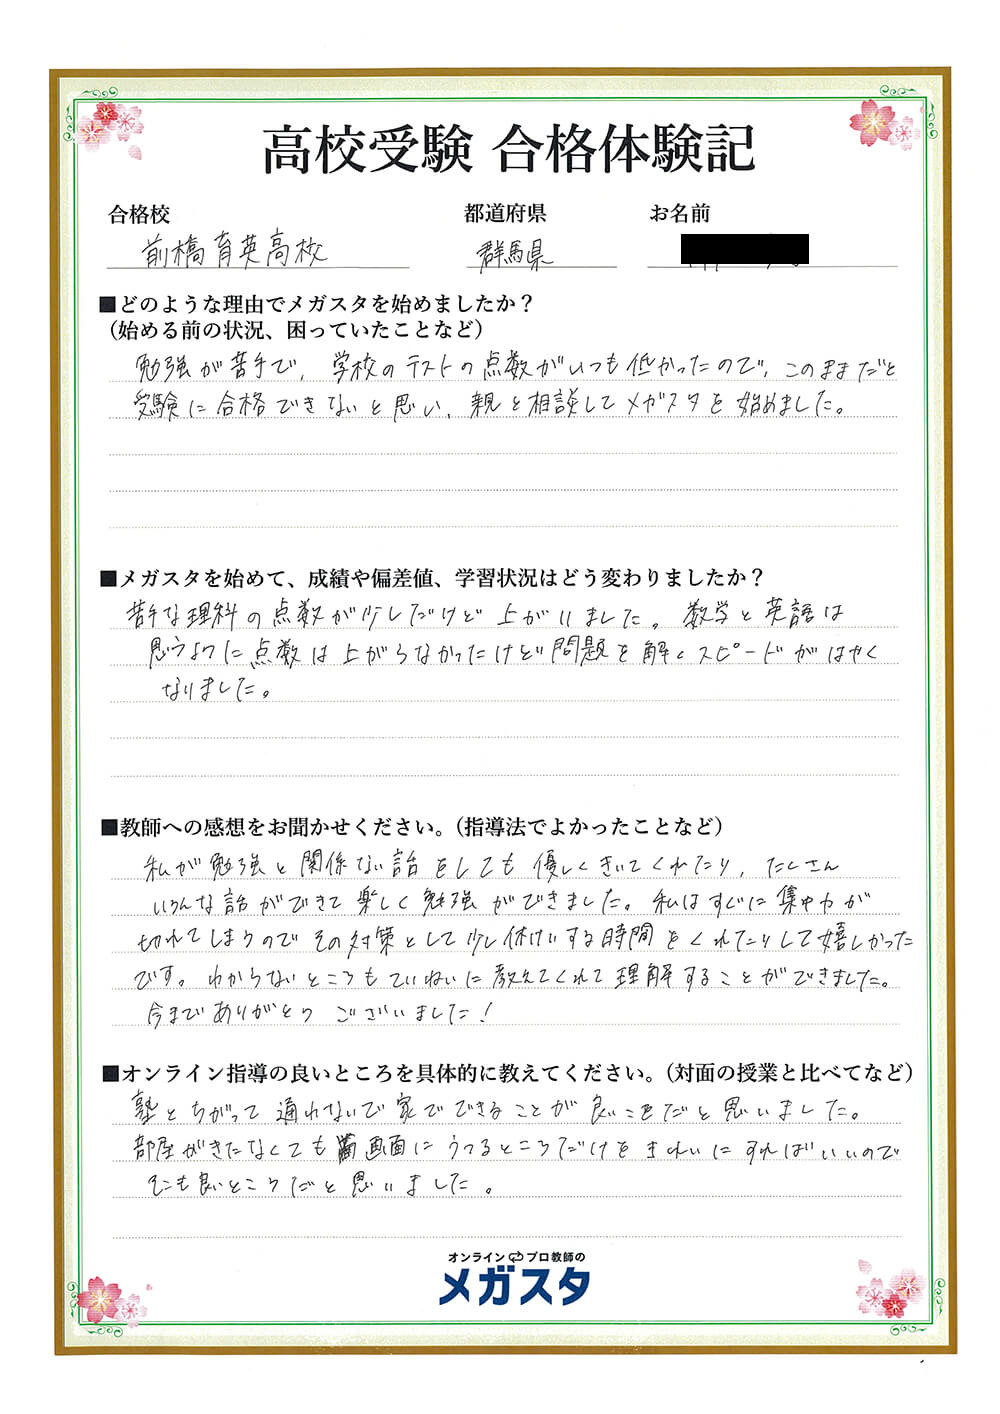 高校受験 合格体験記
合格校 都道府県 お名前
前橋育英高校 群馬県
■どのような理由でメガスタを始めましたか？
（始める前の状況、困っていたことなど）
勉強が苦手で、学校のテストの点数がいつも低かったので、このままだと
受験に合格できないと思い、親と相談してメガスタを始めました。
■メガスタを始めて、成績や偏差値、学習状況はどう変わりましたか？
苦手な理科の点数が少しだけど上がりました。数学と英語は
思うように点数は上がらなかったけど問題を解くスピードがはやく
なりました。
■教師への感想をお聞かせください。（指導法でよかったことなど）
私が勉強と関係ない話をしても優しくきいてくれたり、たくさん
いろんな話ができて楽しく勉強ができました。私はすぐに集中力が
切れてしまうのでその対策として少し休けいする時間をくれたりして嬉しかった
です。わからないところもていねいに教えてくれて理解することができました。
今までありがとう ございました！
■オンライン指導の良いところを具体的に教えてください。（対面の授業と比べてなど）
塾とちがって通れないで家でできることが良いことだと思いました。
部屋がきたなくても画面にうつるところだけをきれいにすればいいので
そこも良いところだと思いました。
オンライン プロ教師の
メガスタ